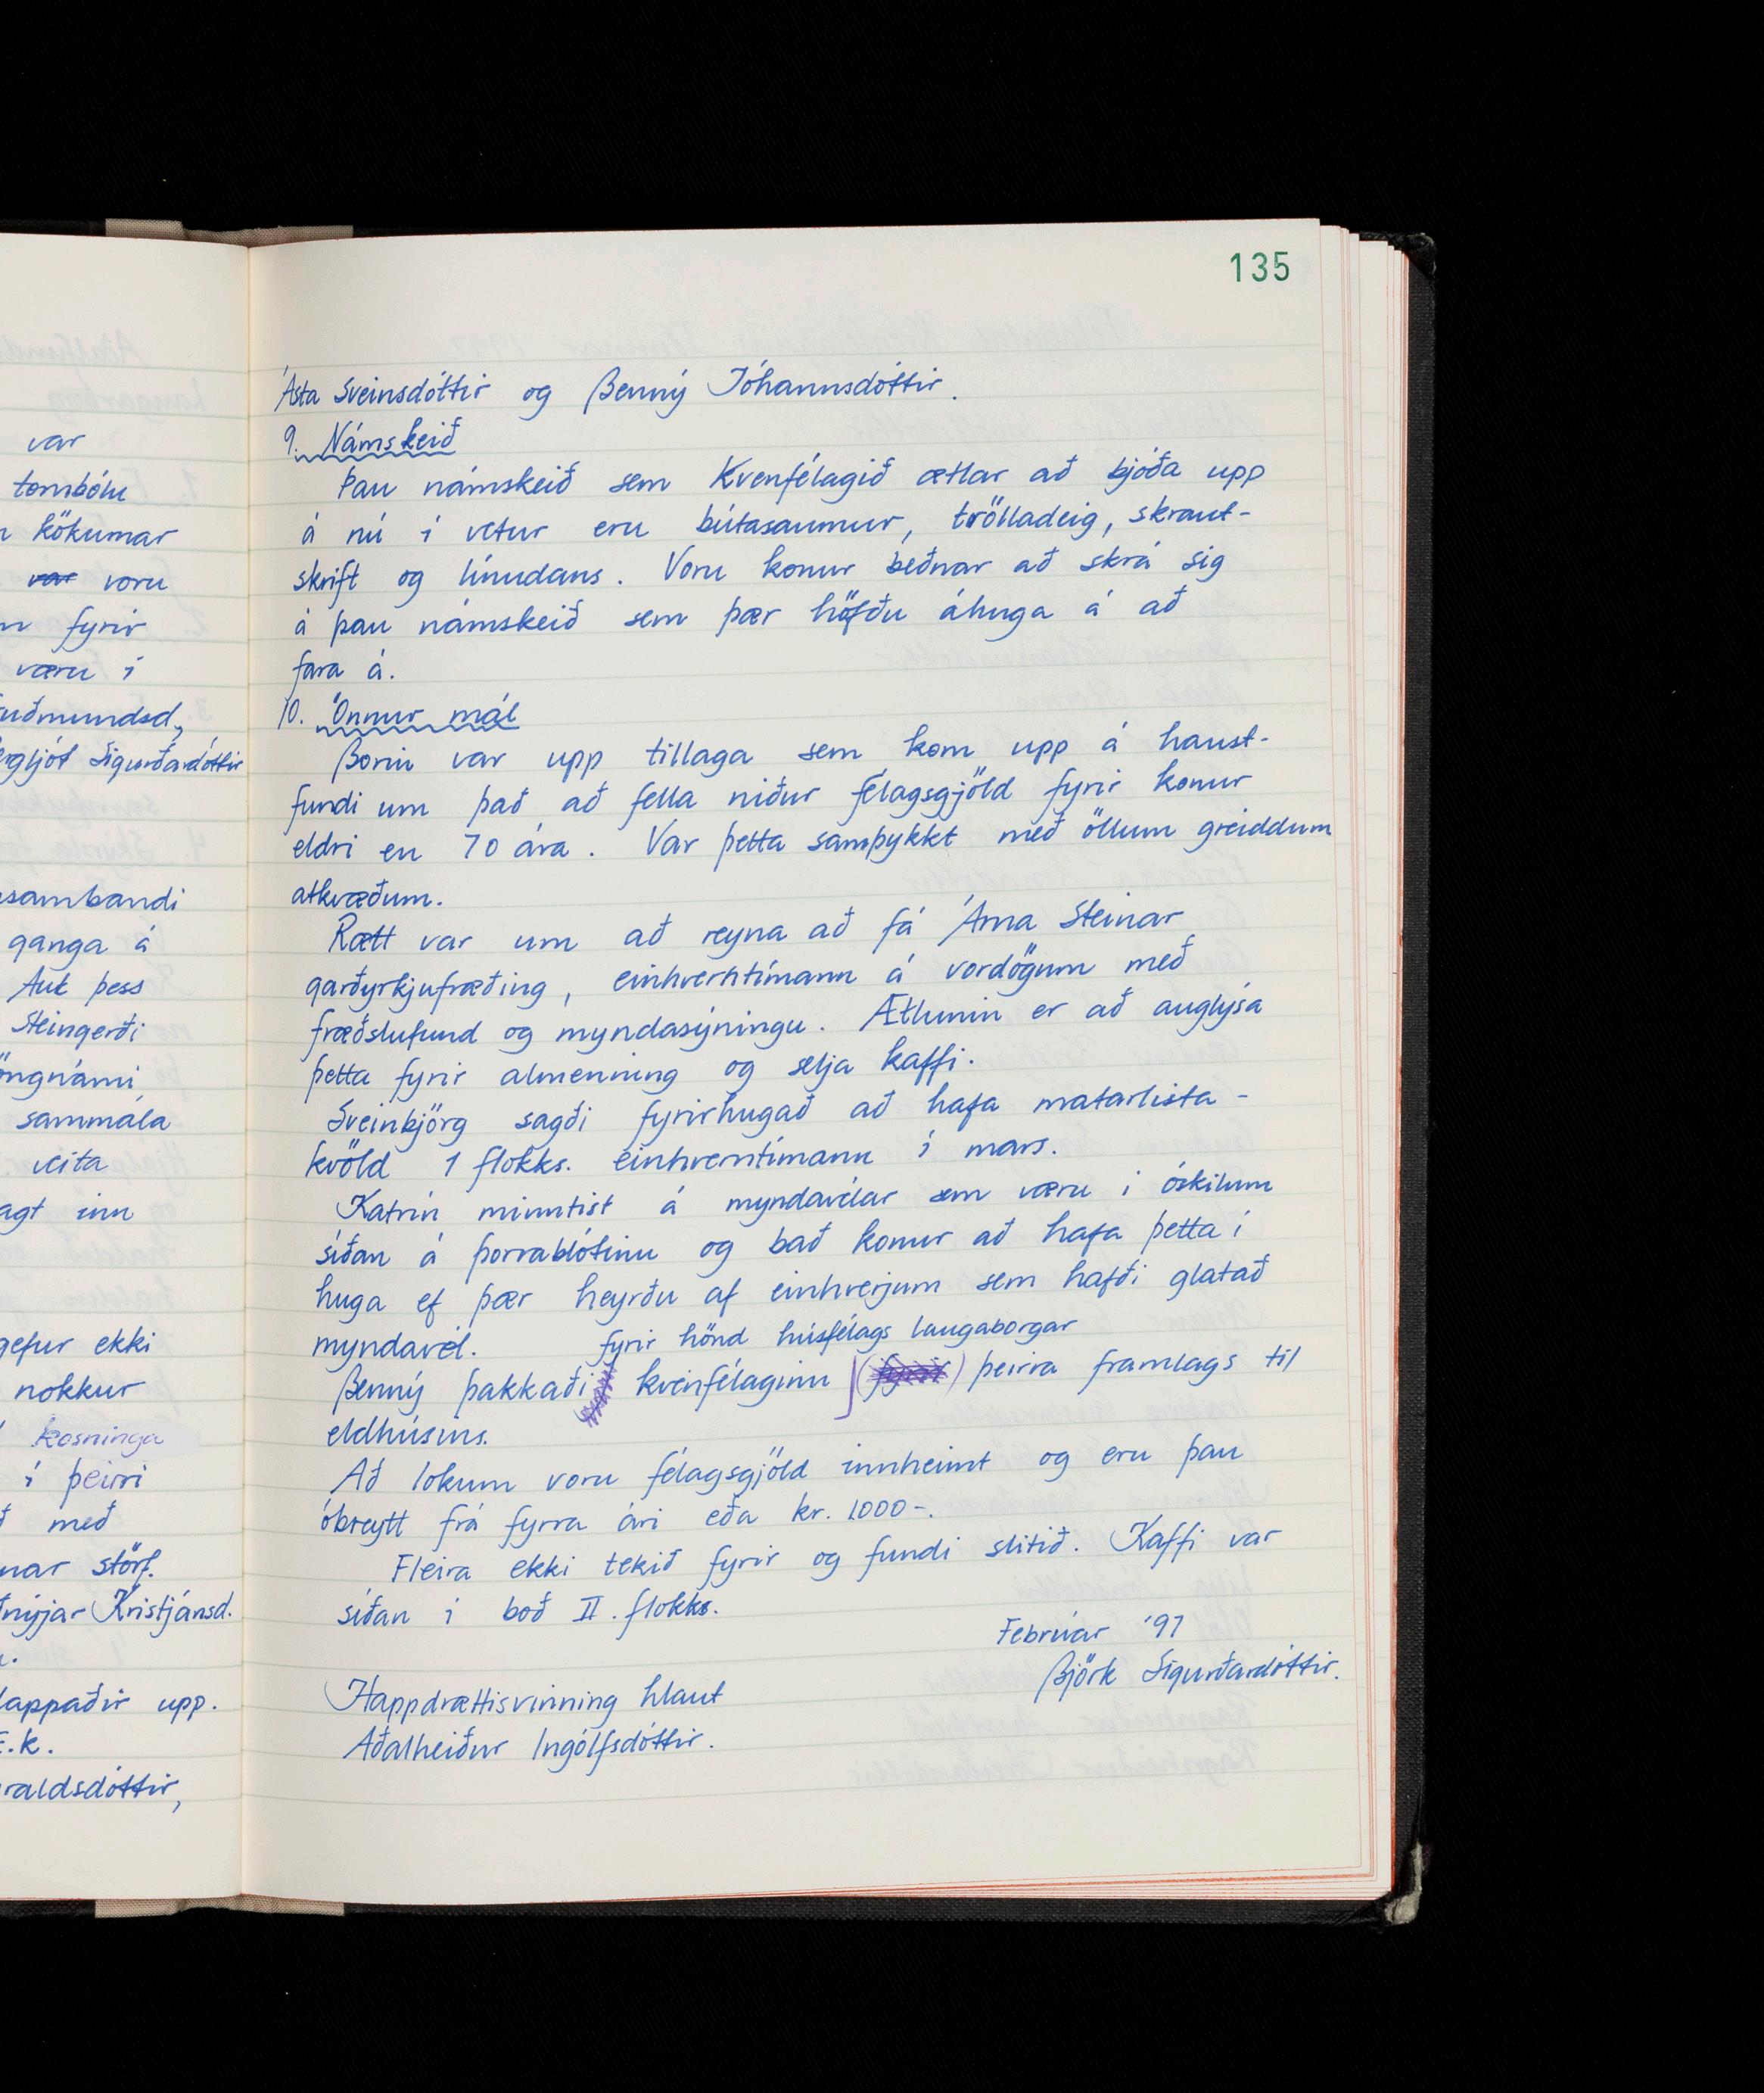 135
var
tombólu
kökurnar
var voru
fyrir
væru í
uðmundsd,
rgljót Sigurðardóttir
sambandi
ganga á
Auk þess
Steingerði
öngnámi
sammála
veita
agt inn
gefur ekki
nokkur
kosninga
í þeirri
með
nar störf.
ðnýjar Kristjánsd.
lappaðir upp.
E.k.
raldsdóttir,
Ásta Sveinsdóttir og Benný Jóhannsdóttir.
9. Námskeið
Þau námskeið sem Kvenfélagið ætlar að bjóða upp
á nú í vetur eru bútasaumur, trölladeig, skraut-
skrift og línudans. Voru konur beðnar að skrá sig
á þau námskeið sem þær höfðu áhuga á að
fara á.
10. Önnur mál
Borin var upp tillaga sem kom upp á haust-
fundi um það að fella niður félagsgjöld fyrir konur
eldri en 70 ára. Var þetta samþykkt með öllum greiddum
atkvæðum.
Rætt var um að reyna að fá Árna Steinar
garðyrkjufræðing, einhverntímann á vordögum með
fræðslufund og myndasýningu. Ætlunin er að auglýsa
þetta fyrir almenning og selja kaffi.
Sveinbjörg sagði fyrirhugað að hafa matarlista-
kvöld 1 flokks. einhverntímann í mars.
Katrín minntist á myndavélar sem væru í óskilum
síðan á þorrablótinu og bað konur að hafa þetta í
huga ef þær heyrðu af einhverjum sem hafði glatað
myndavél.
fyrir hönd húsfélags Laugaborgar
Benný þakkaði kvenfélaginu (fyrir) þeirra framlags til
eldhúsins.
Að lokum voru félagsgjöld innheimt og eru þau
óbreytt frá fyrra ári eða kr. 1000-.
Fleira ekki tekið fyrir og fundi slitið. Kaffi var
síðan í boð II. flokks.
Febrúar '97
Björk Sigurðardóttir.
Happdrættisvinning hlaut
Aðalheiður Ingólfsdóttir.